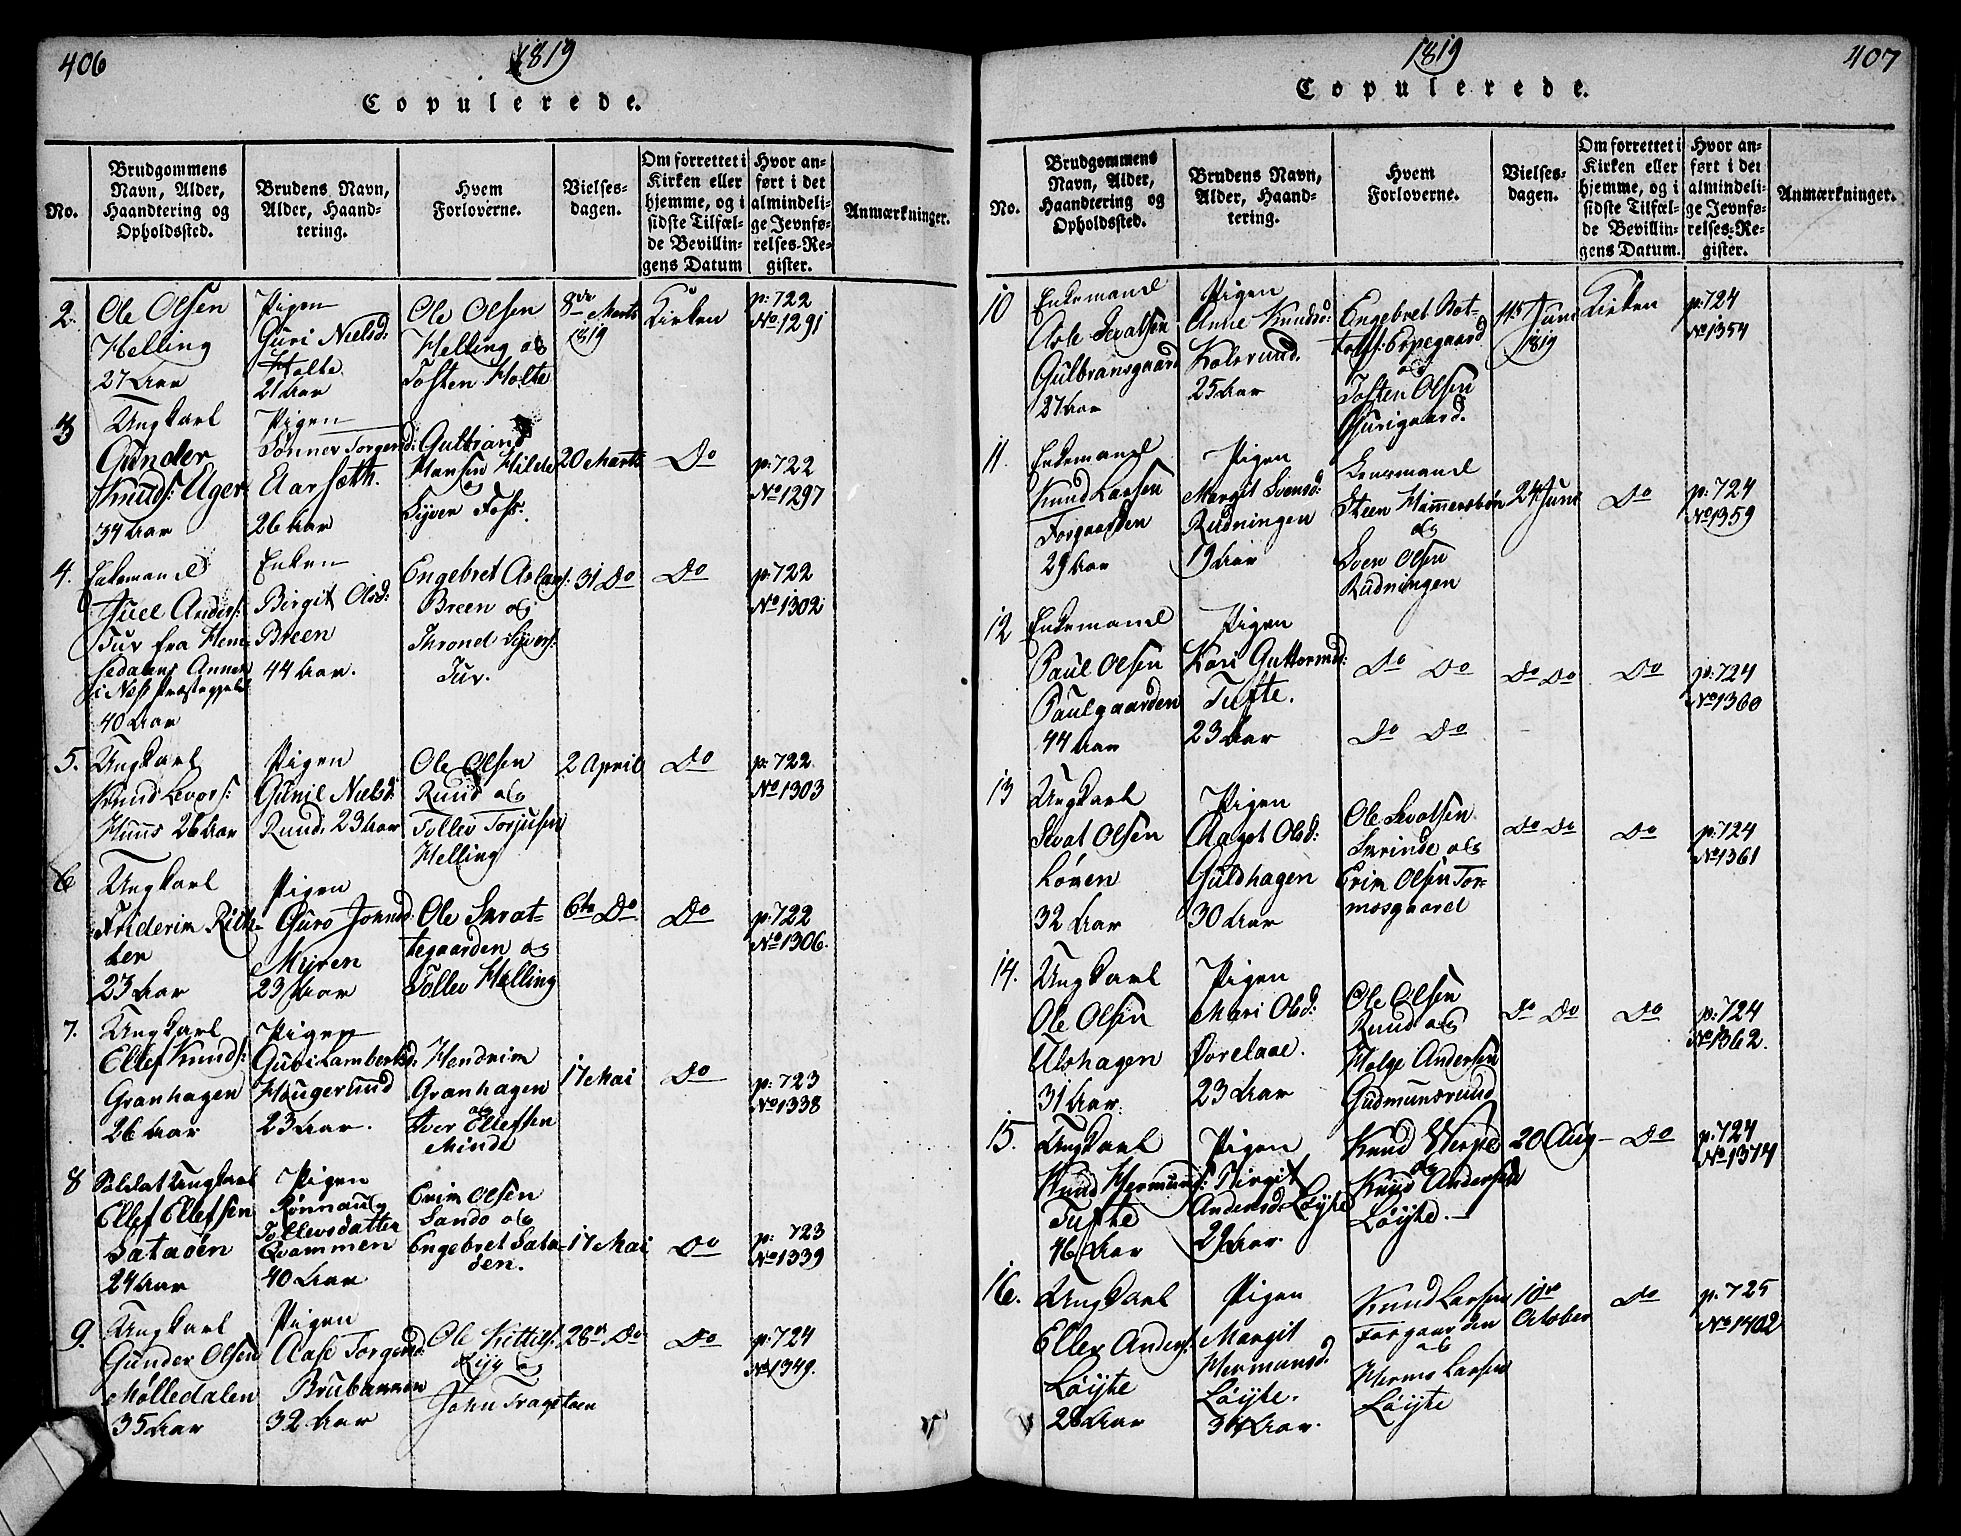 406
1819
Copulerede.
No.
Brudgommens Navn, Alder, Haandtering og Opholdssted.
Brudens Navn, Alder, Haandtering.
Hvem Forloverne.
Vielsesdagen.
Om forrettet i Kirken eller hjemme, og i sidste Tilfælde Bevillingens Datum
Hvor anført i det almindelige Jevnførelses-Register.
Anmærkninger.
2.
Ole Olsen
Helling
27 Aar
Pigen
Guri Nielsd:
Holte
21 Aar
Ole Olsen
Helling og
Tosten Holte
8de Marts
1819
Kirken
p: 722
No 1291
3
Ungkarl
Gunder
Knuds: Ager
34 Aar
Pigen
Aarsæth.
26 Aar
Gulbrand
Hansen Hilde
og
Syver Foss.
20 Marts
Do
p: 722
No 1297
4.
Enkemand
Juel Anders:
Tuv fra Hem-
sedalens Annex
i Næss Præstegjeld
40 Aar
Enken
Birgit Olsd:
Breen
44 Aar.
Engebret Aslaks:
Breen og
Thrond Syvers:
Tuv.
31 Do
Do
p: 722
No 1302
5.
Ungkarl
Knud Levors:
26 Aar
Pigen
Gunil Nielsd:
Ruud. 23 Aar
Ole Olsen
Ruud og
Tollev Torjusen
Helling
2 April
Do
p: 722
No 1303
6
Ungkarl
Friderik
23 Aar
Pigen
Guro Jonsd:
Myren
23 Aar
Ole Skrat-
tegaarden og
Tollev Helling
6te Do
Do
p: 722
No 1306.
7.
Ungkarl
Ellef Knuds:
Granhagen
26 Aar
Pigen
Guri Lambertsd:
Haugerund
23 Aar.
Hendrik
Granhagen
og
Iver Ellefsen
Minde
17 Mai
Do
p: 723
No 1338
8
Soldat Ungkarl
Ellef Ellefsen
Sataøen
24 Aar
Pigen
Rønnaug
Tollevsdatter
Qvammen
40 Aar
Erik Olsen
Sando og
Engebret Sata-
øen.
17 Mai
Do
p: 723
No 1339
9.
Ungkarl
Gunder Olsen
Mølledalen
35 Aar
Pigen
Aase Torgersd:
Brubakken
32 Aar
Ole Kittils:
og
John
28de Do
Do
p: 724
No 1349.
407
1819
Copulerede.
No.
Brudgommens Navn, Alder, Haandtering og Opholdssted.
Brudens Navn, Alder, Haandtering.
Hvem Forloverne.
Vielsesdagen.
Om forrettet i Kirken eller hjemme, og i sidste Tilfælde Bevillingens Datum.
Hvor anført i det almindelige Jevnførelses-Register.
Anmærkninger.
10
Enkemand
Asle Sevatsen
Gulbransgaard
27 Aar
Pigen
Anne Knudsd:
Kolsrund.
25 Aar
Engebret Bot-
tolfs: Espegaard
og
Tosten Olsen
Gurigaard.
15 Juni
1819
Kirken
p: 724
No 1354
11.
Enkemand
Knud Larsen
Torgaarden
29 Aar
Pigen
Margit Svensd:
Rudningen
19 Aar
Lensmand
Steen Hammersbøn
og
Sven Olsen
Rudningen
24 Juni
Do
p: 724
No 1359
12
Enkemand
Paul Olsen
Paulgaarden
44 Aar
Pigen
Kari Guttormsd:
Tufte.
23 Aar
Do Do
Do Do
Do Do
Do
p: 724
No 1360
13
Ungkarl
Sevat Olsen
Løken
32 Aar
Pigen
Raget Olsd:
Guldhagen
30 Aar
Ole Sevatsen
Skrinde og
Erik Olsen Tor-
mosgaard
Do Do
Do
p: 724
No 1361
14.
Ungkarl
Ole Olsen
Ulshagen
31 Aar.
Pigen
Mari Olsd:
Dorelaae.
23 Aar
Ole Olsen
Ruud og
Helge Andersen
Gudmunsrund
Do Do
Do
p: 724
No 1362.
15.
Ungkarl
Knud Hermunds:
Tufte
46 Aar
Pigen
Birgit
Andersd Løyte
29 Aar.
Knud Werpe
og
Knud Andersen
Løyte.
20 Aug
Do
p: 724
No 1374
16.
Ungkarl
Ellev Anders:
Løyte
28 Aar
Pigen
Margit
Hermunsd.
Løyte.
34 Aar.
Knud Larsen
Torgaarden
og
Herms Larsen
Løyte
10de
October
Do
p: 725
No 1402